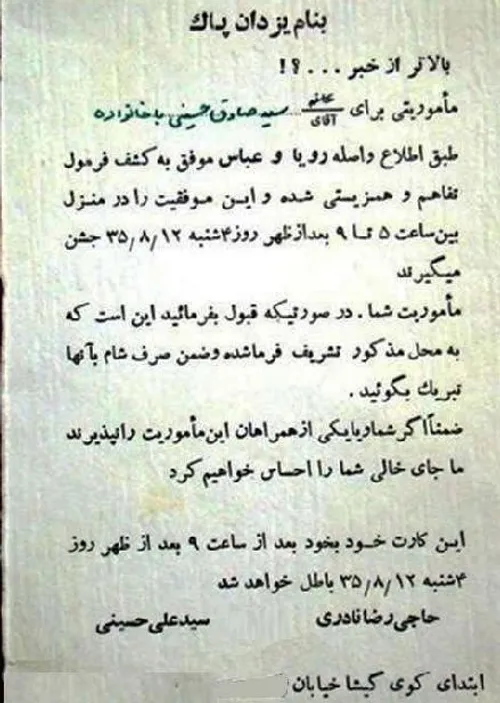 بنام یزدان پاک
بالاتر از خبر ...؟!
مأموریتی برای خانم / آقای سید صادق حسینی باخانواده
طبق اطلاع واصله رویا و عباس موفق به کشف فرمول
تفاهم و همزیستی شده و ایـن مـوفقیت را در منـزل
بین‌ساعت ۵ تـا ۹ بعدازظهر روز ۴شنبه ۳۵٫۸٫۱۲ جشن
میگیرند
مأموریت شما . در صورتیکه قبول بفرمائید این است که
به محل مذکور تشریف فرماشده وضمن صرف شام بآنها
تبریك بگوئید .
ضمناً اگر شما و یا یکی از همراهان این مأموریت را نپذیرند
ما جای خالی شما را احساس خواهیم کرد
ایـن کارت خـود بخود بعد از ساعت ۹ بعد از ظهر روز
۴شنبه ۳۵٫۸٫۱۲ باطل خواهد شد
حاجی رضا نادری سیدعلی حسینی
ابتدای کوی گیشا خیابان